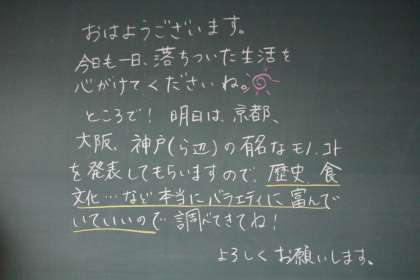 おはようございます。
今日も一日、落ちついた生活を
心がけてくださいね。
ところで！明日は、京都、
大阪、神戸(ら辺)の有名なモノ、コト
を発表してもらいますので、歴史 食
文化…など本当にバラエティに富んで
いていいので調べてきてね！
よろしくお願いします。